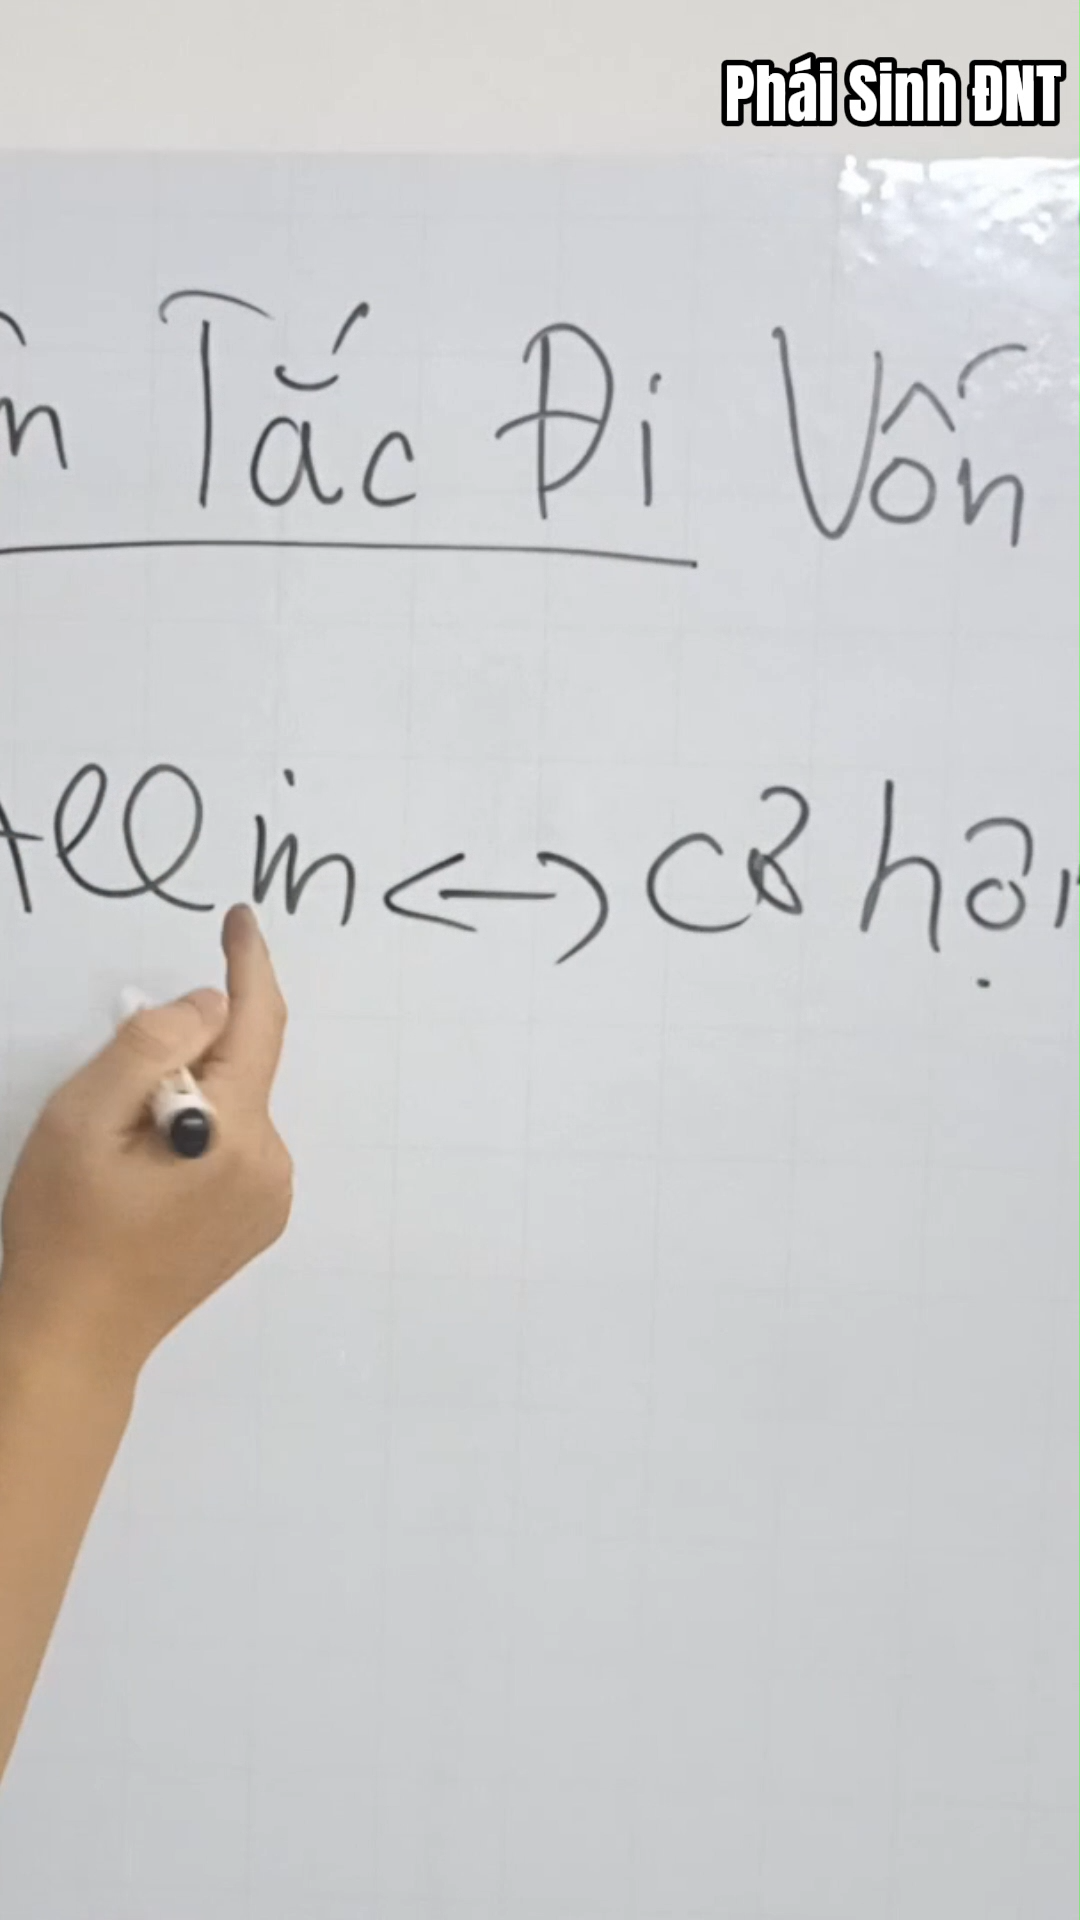 Phái Sinh ĐNT
Tắc Đi Vốn
All in <-> Cơ hội